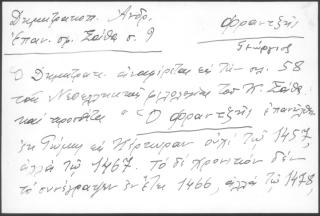 Δημητρακοπ. Ανδρ.
Επαν. σφ. Σάθα σ. 9
Φραντζῆς
Γεώργιος
Ὁ Δημητρακ. ἀναφέρεται εἰς τὴν σελ. 58
τῆς Νεοελληνικῆς φιλολογίας τοῦ Κ. Σάθα
καὶ προσθέτει "Ὁ Φραντζῆς ἐπανῆλθε
ἐκ Ρώμης εἰς Κέρκυραν οὐχὶ τῷ 1457,
ἀλλὰ τῷ 1467. Τὸ δὲ χρονικὸν δὲν
τὸ συνέγραψεν ἐν ἔτει 1466, ἀλλὰ τῷ 1478,